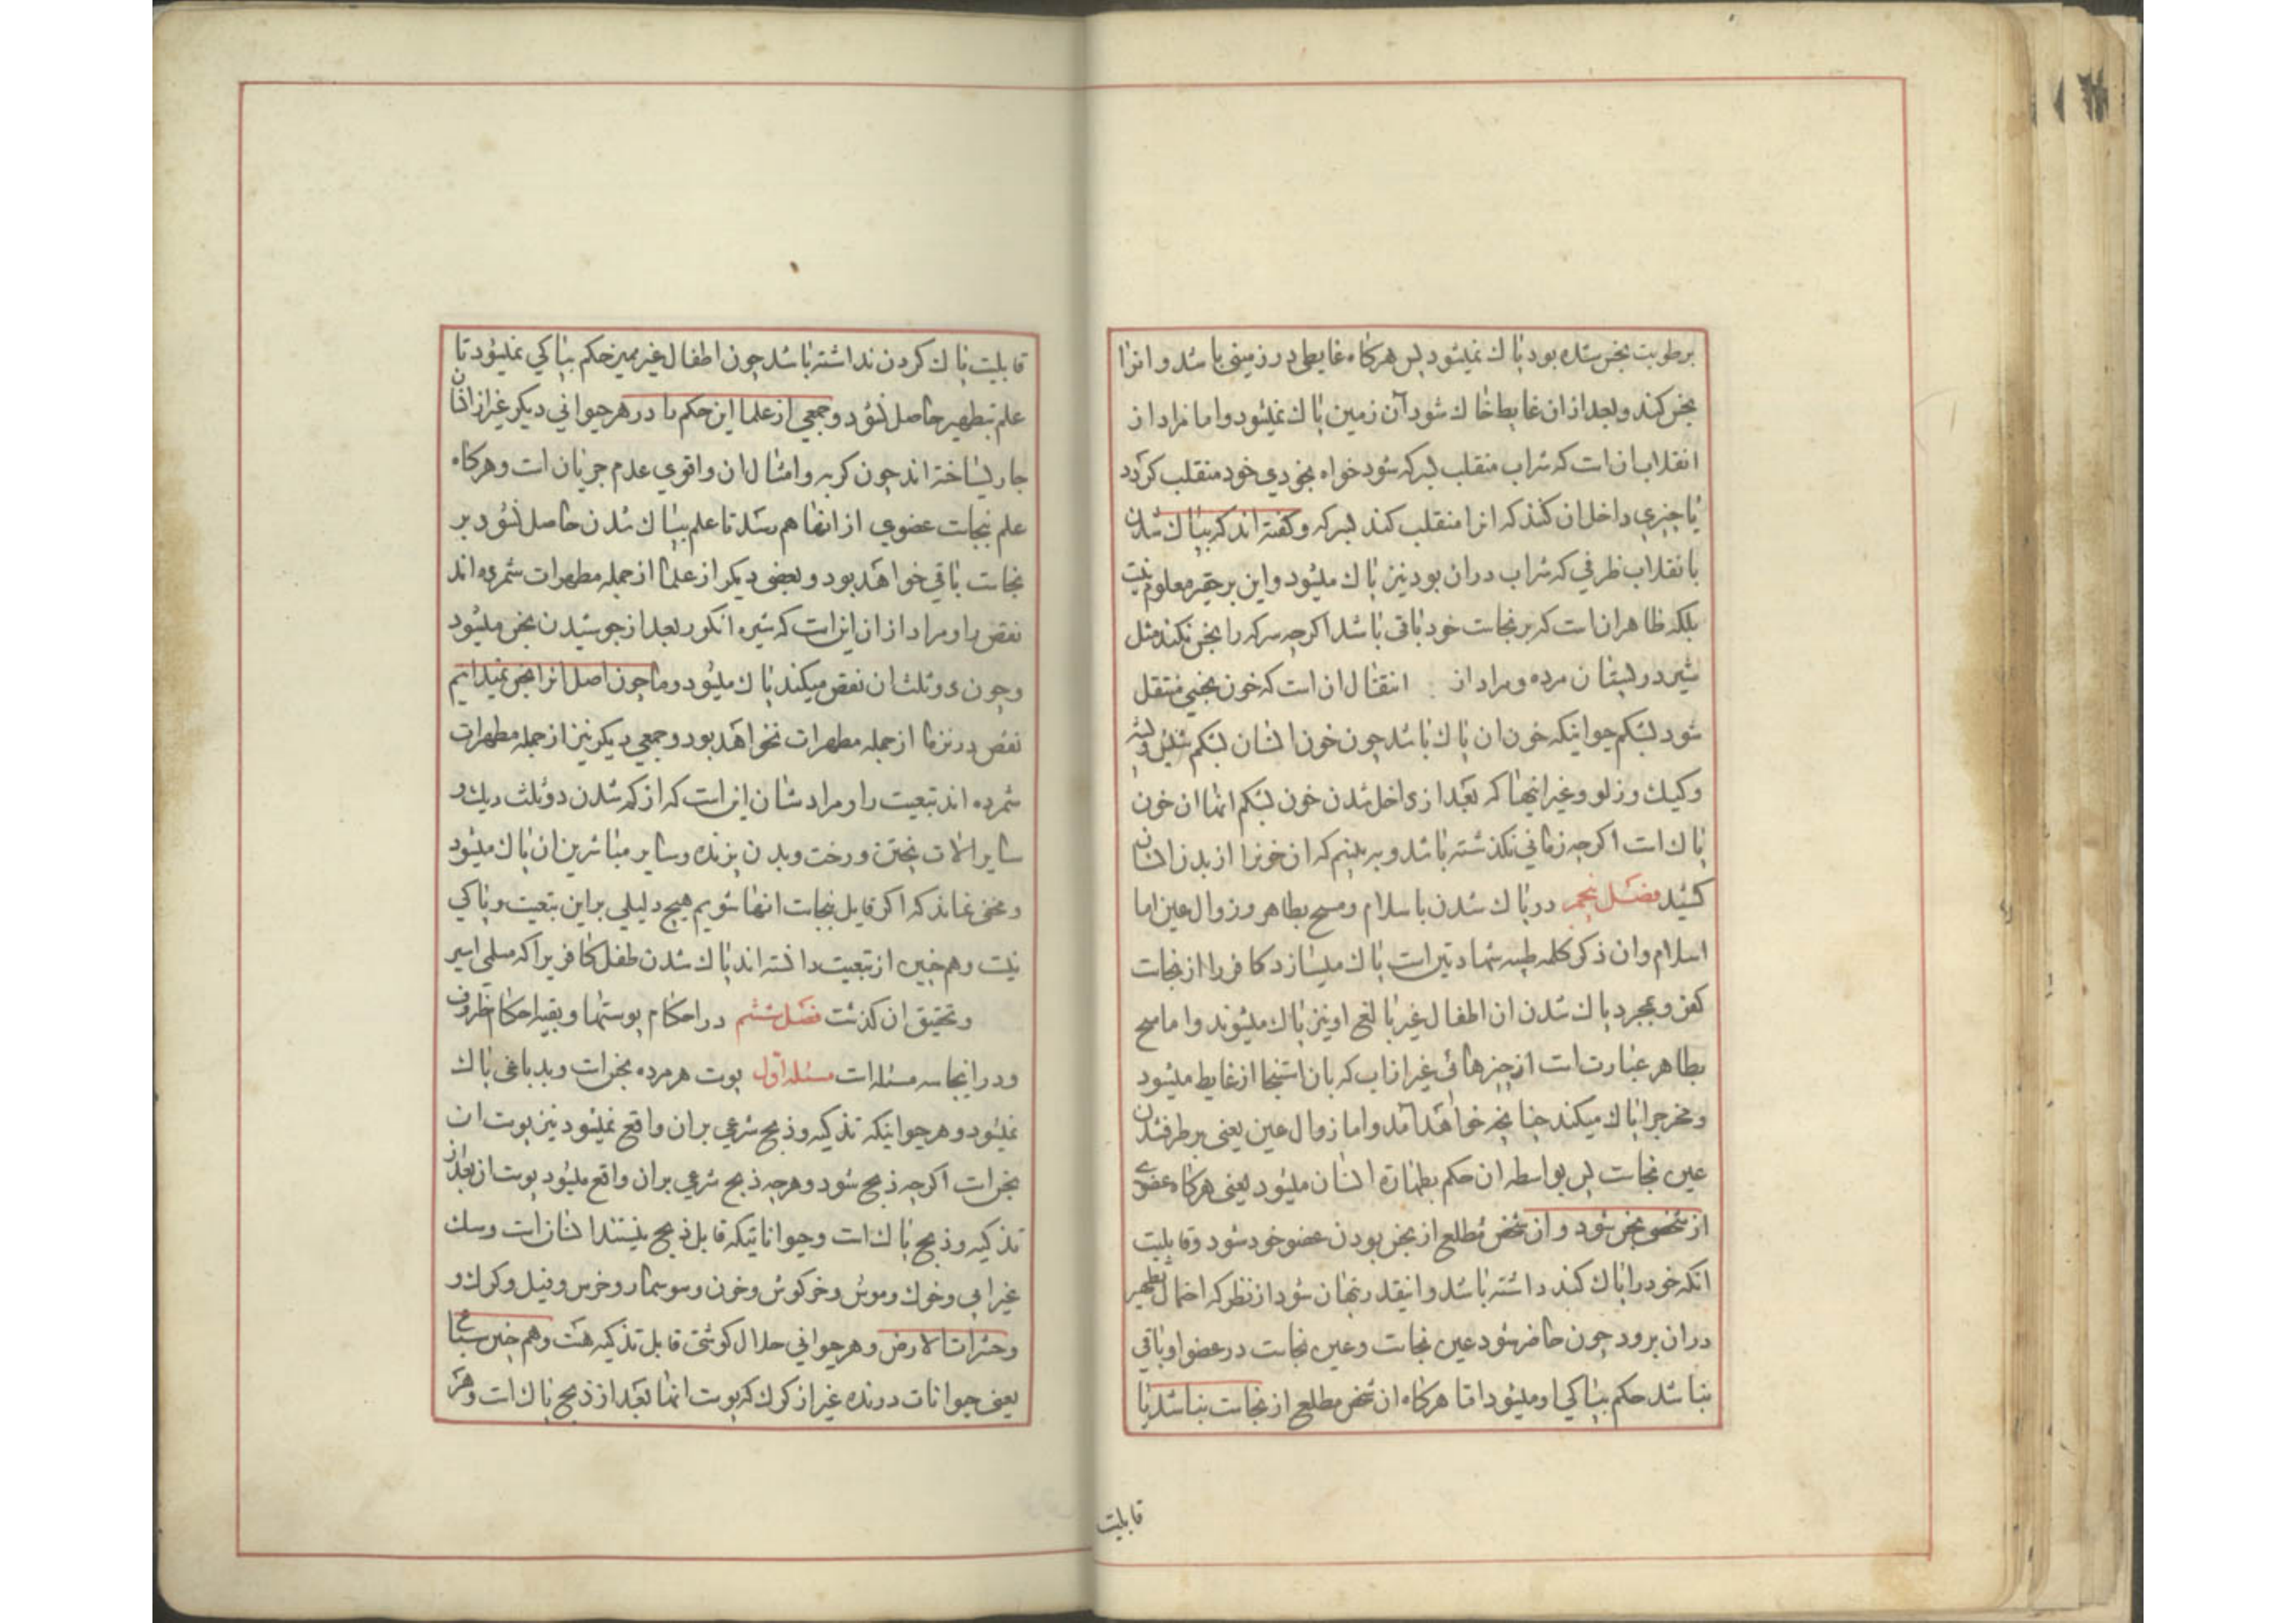 برطوبت نجس شده بود پاك نمیشود پس هركاه غایطی در زمینی باشد و انرا
نجس كند و بعد از ان غایط خاك شود آن زمین پاك نمیشود و اما مراد از
انقلاب ان است كه شراب منقلب بسركه شود خواه بخودی خود منقلب كردد
یا چیزی داخل ان كنند كه انرا منقلب كند بسركه و كفته اند كه بپاك شدن
بانقلاب ظرفی كه شراب در ان بود نیز پاك میشود و این بر حقیر معلوم نیست
بلكه ظاهر ان است كه بر نجاست خود باقی باشد اكرچه سركه را نجس نكند مثل
شیر در پستان مرده و مراد از انتقال ان است كه خون نجسی منتقل
شود بشكم حیوانیكه خون ان پاك باشد چون خون انسان بشكم شپش و پشه
و كیك و زلو و غیر اینها كه بعد از داخل شدن خون بشكم انها ان خون
پاك است اكرچه زمانی نكذشته باشد و به بینیم كه ان خونرا از بدن انسان
كشید فصل پنجم در پاك شدن باسلام و مسح بطاهر و زوال عین اما
اسلام و ان ذكر كلمه طیبه شهادتین است پاك میسازد كافر را از نجاست
كفر و بمجرد پاك شدن ان اطفال غیر بالغ او نیز پاك میشوند و اما مسح
بطاهر عبارت است از چیزهائی غیر از اب كه بان استنجا از غایط میشود
و مخرجرا پاك میكند چنانچه خواهد آمد و اما زوال عین یعنی برطرف شدن
عین نجاست پس بواسطه ان حكم بطهارة انسان میشود یعنی هركاه عضوی
از شخصی نجس شود و ان شخص مطلع از نجس بودن عضو خود شود و قابلیت
انكه خود را پاك كند داشته باشد و انیقدر پنهان شود از نظر كه احتمال تطهیر
در ان برود چون حاضر شود عین نجاست و عین نجاست در عضو او باقی
نباشد حكم بپاكی او میشود اما هركاه ان شخص مطلع از نجاست نباشد یا
قابلیت
قابلیت پاك كردن نداشته باشد چون اطفال غیر ممیز حكم بپاكی نمیشود تا
علم بتطهیر حاصل نشود و جمعی از علما این حكم را در هر حیوانی دیكر غیر از انسان
جاری ساخته اند چون كربه و امثال ان و اقوی عدم جریان است و هركاه
علم نجاست عضوی از انها هم رسد تا علم بپاك شدن حاصل نشود بر
نجاست باقی خواهد بود و بعضی دیكر از علما از جمله مطهرات شمرده اند
نقص را و مراد از ان انست كه شیره انكور بعد از جوشیدن نجس میشود
و چون دو ثلث ان نقص میكند پاك میشود و ما چون اصل انرا نجس نمیدانیم
نقص در نزد ما از جمله مطهرات نخواهد بود و جمعی دیكر نیز از جمله مطهرات
شمرده اند تبعیت را و مراد شان انست كه از كم شدن دو ثلث دیك و
سایر الات پختن و رخت و بدن پزنده و سایر مباشرین ان پاك میشود
و مخفی نماند كه اكر قایل بنجاست انها شویم هیچ دلیلی بر این تبعیت و پاكی
نیست و هم چنین از تبعیت دانسته اند پاك شدن طفل كافریرا كه مسلمی اسیر
و تحقیق ان كذشت فصل ششم در احكام پوستها و بقیه احكام ظروف
و در اینجا سه مسئله است مسئله اول پوست هر مرده نجس است و بدباغی پاك
نمیشود و هر حیوانیكه تذكیه و ذبح شرعی بر ان واقع نمیشود نیز پوست ان
نجس است اكرچه ذبح شود و هرچه ذبح شرعی بر ان واقع میشود پوست ان بعد از
تذكیه و ذبح پاك است و حیواناتیكه قابل ذبح نیستند انسان است و سك
غیر ابی و خوك و موش و خركوش و خون و سوسمار و خرس و فیل و كرك و
و حشرات الارض و هر حیوانی حلال كوشتی قابل تذكیه هست و هم چنین سباع
یعنی حیوانات درنده غیر از كرك كه پوست انها بعد از ذبح پاك است و هر